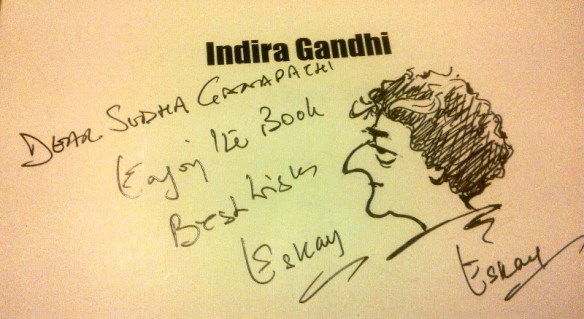 Indira Gandhi
DEAR SUDHA GANAPATHI
Enjoy the Book
Best Wishes
Eskay
Eskay